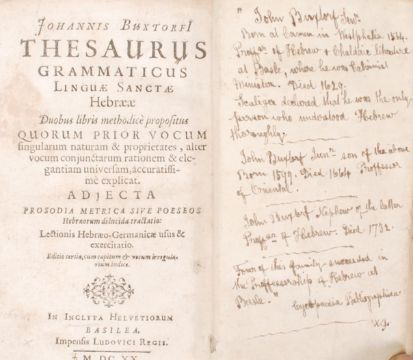 JOHANNIS BUXTORFI
THESAURUS
GRAMMATICUS
LINGUÆ SANCTÆ
HEBRÆÆ
Duobus libris methodicè propositus
QUORUM PRIOR VOCUM
singularum naturam & proprietates, alter
vocum conjunctarum rationem & ele-
gantiam universam, accuratissi-
mè explicat.
ADJECTA
PROSODIA METRICA SIVE POESEOS
Hebræorum dilucida tractatio:
Lectionis Hebræo-Germanicæ usus &
exercitatio.
Editio tertia, cum capitum & vocum irregula-
rium indice.
IN INCLYTA HELVETIORUM
BASILEA,
Impensis LUDOVICI REGIS.
M DC XX
"John Buxtorf Senr.
Born at Camen in Westphalia 1564.
Profesr of Hebrew & Chaldic literature
at Basle, where he was Calvinist
Minister. Died 1629.
Scaliger declared that he was the only
person who understood Hebrew
thoroughly.
John Buxtorf Junr son of the above
Born 1599. Died 1664 Professor
of Oriental.
John Buxtorf Nephew of the latter
Profesr of Hebrew. Died 1732.
Four of this family succeeded in
the Professorship of Hebrew at
Basle."
Cyclopaedia Bibliographica